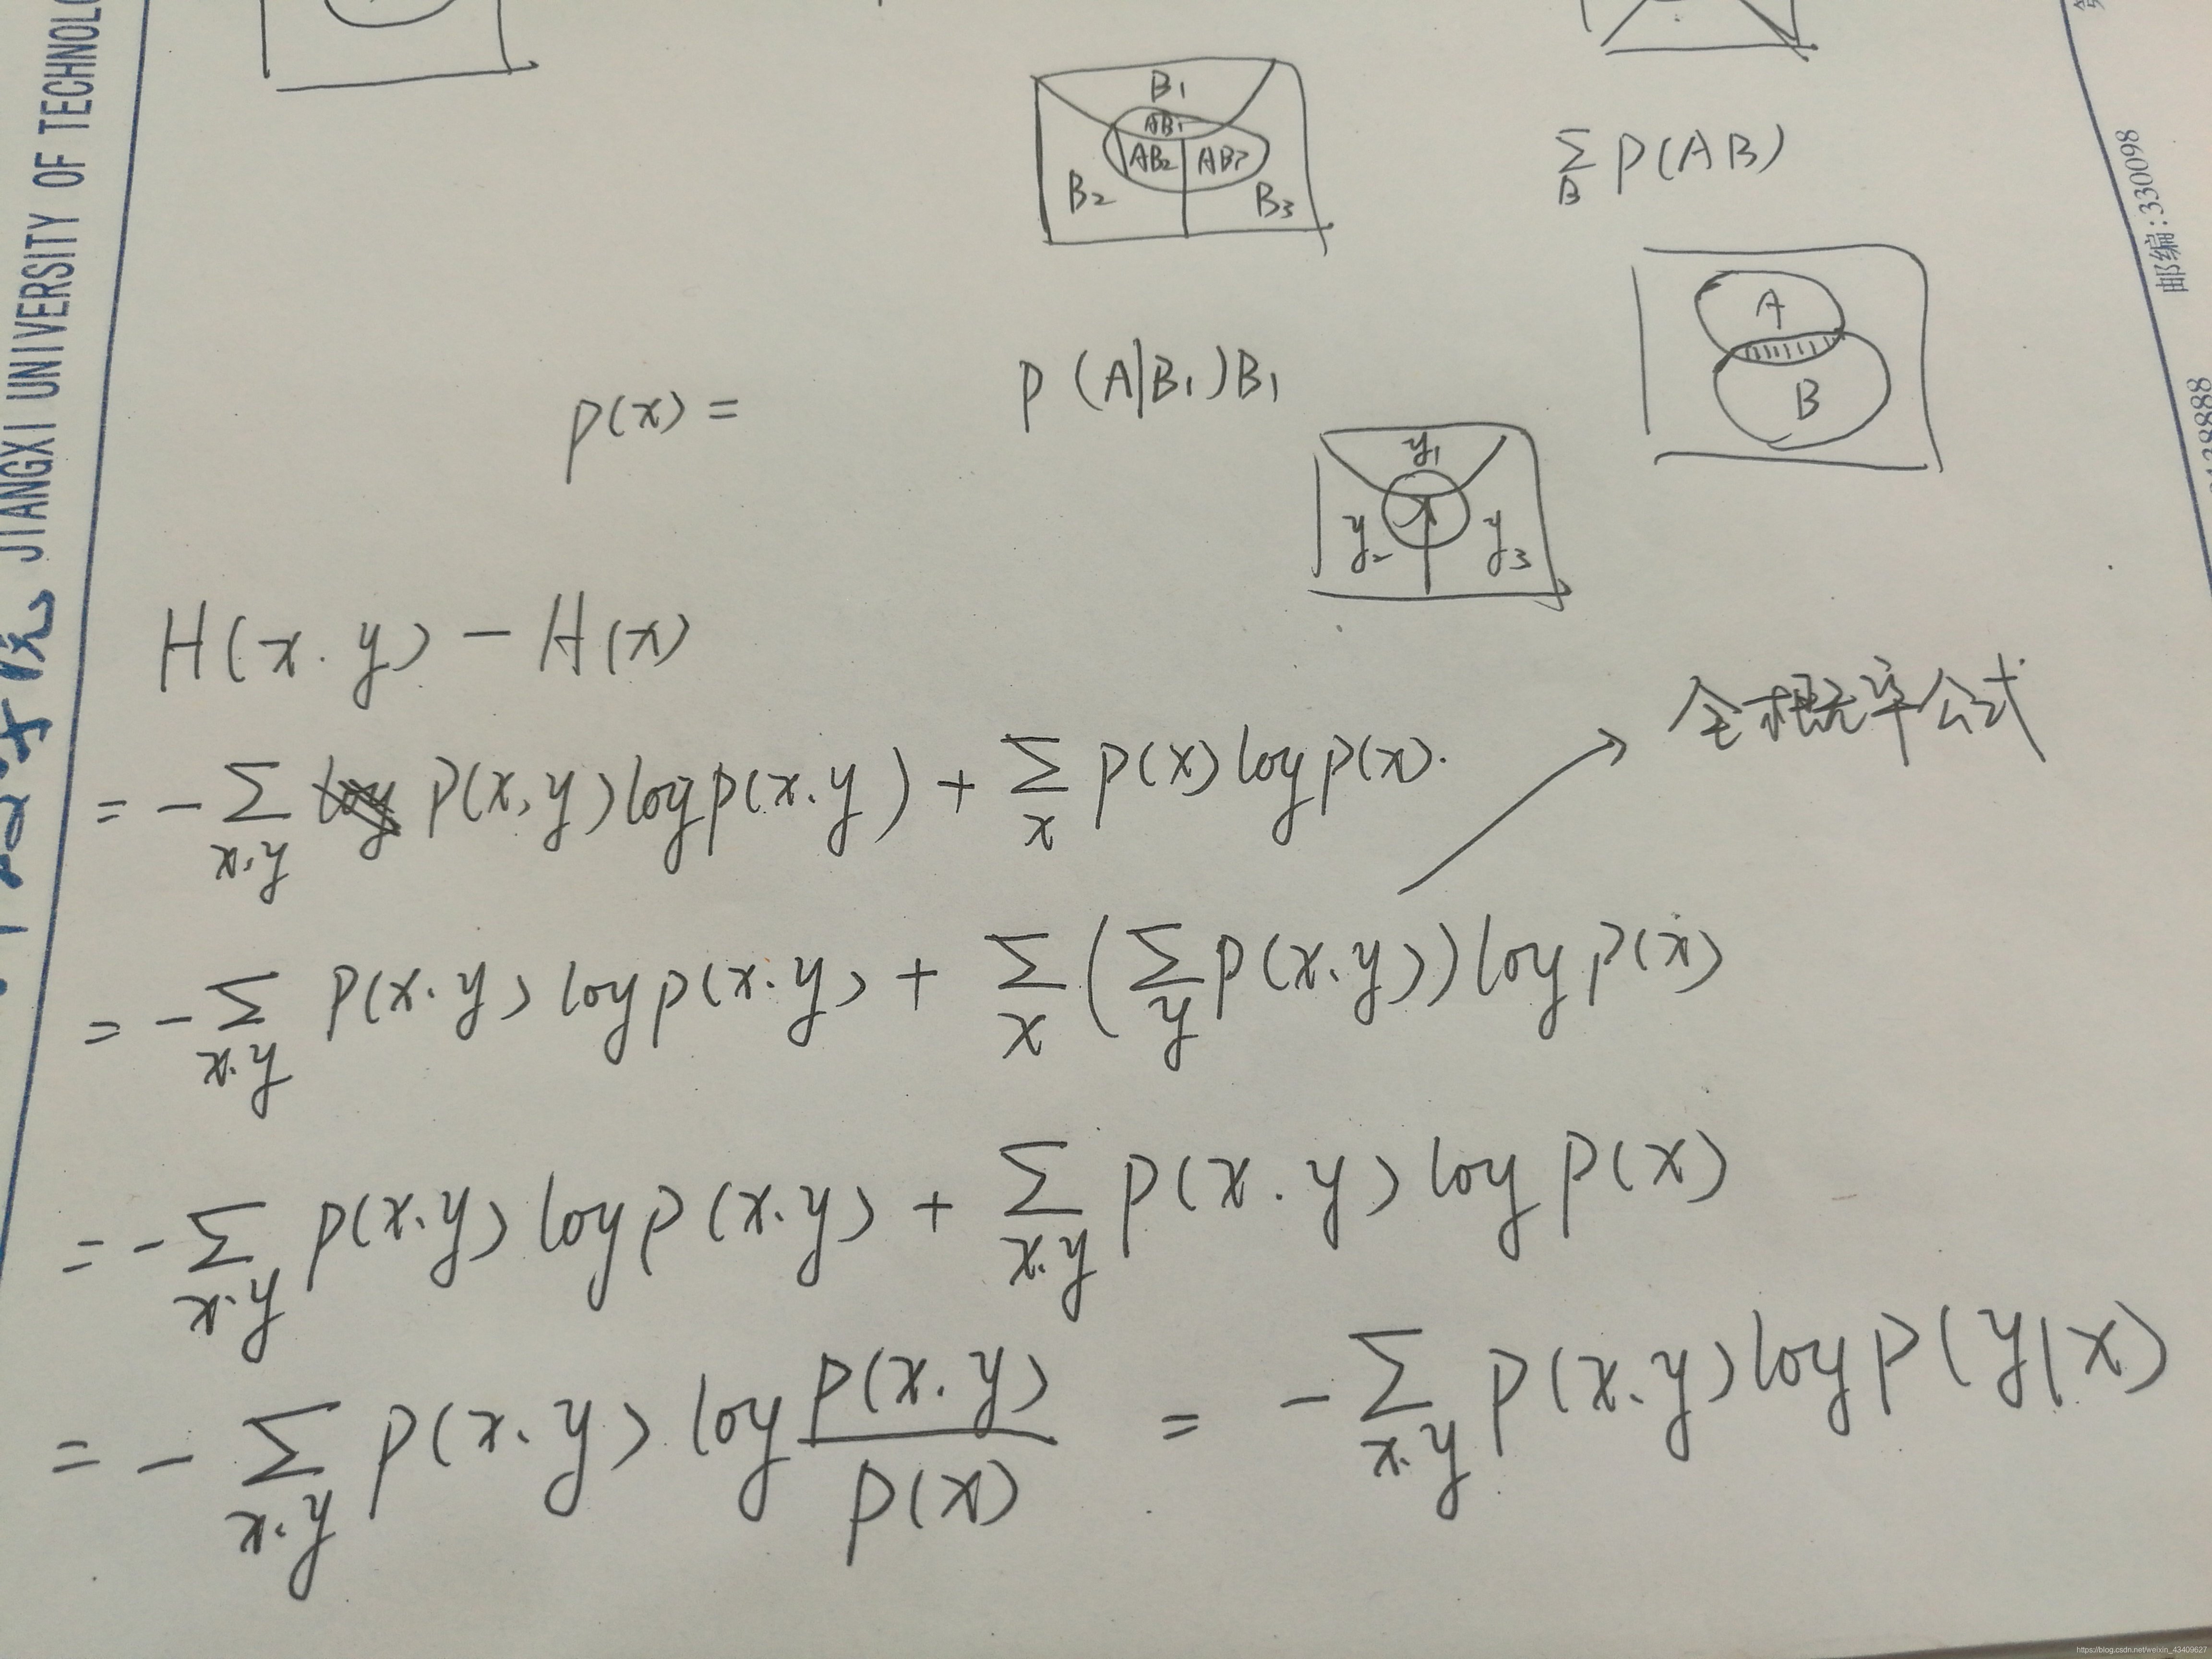 JIANGXI UNIVERSITY OF TECHNOLOG
邮编:330098
B₁
AB₁
AB₂ AB₃
B₂ B₃
∑_B P(AB)
A
B
P(x) =
P(A|B₁)B₁
y₁
x
y₂ y₃
H(x.y) - H(x)
全概率公式
= - ∑_{x,y} P(x,y) log p(x.y) + ∑_x P(x) log p(x).
= - ∑_{x.y} P(x.y) log p(x.y) + ∑_x (∑_y P(x.y)) log P(x)
= - ∑_{x.y} P(x.y) log P(x.y) + ∑_{x.y} P(x.y) log P(x)
= - ∑_{x.y} P(x.y) log P(x.y)/P(x) = - ∑_{x.y} P(x.y) log P(y|x)
https://blog.csdn.net/weixin_43409627